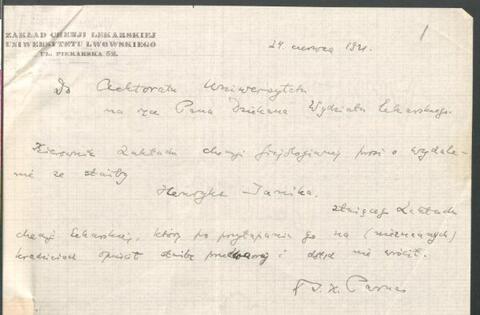 ZAKŁAD CHEMJI LEKARSKIEJ
UNIWERSYTETU LWOWSKIEGO
UL. PIEKARSKA 52.
1
24 czerwca 1921.
Do Rektoratu Uniwersytetu
na ręce Pana Dziekana Wydziału lekarskiego.
Kierownik Zakładu chemji fizjologicznej prosi o wydale-
nie ze służby
Henryka Janika,
służącego Zakładu
chemji lekarskiej, który po przyłapaniu go na (nieznacznych)
kradzieżach opuścił służbę i dotąd nie wrócił.
Parnas